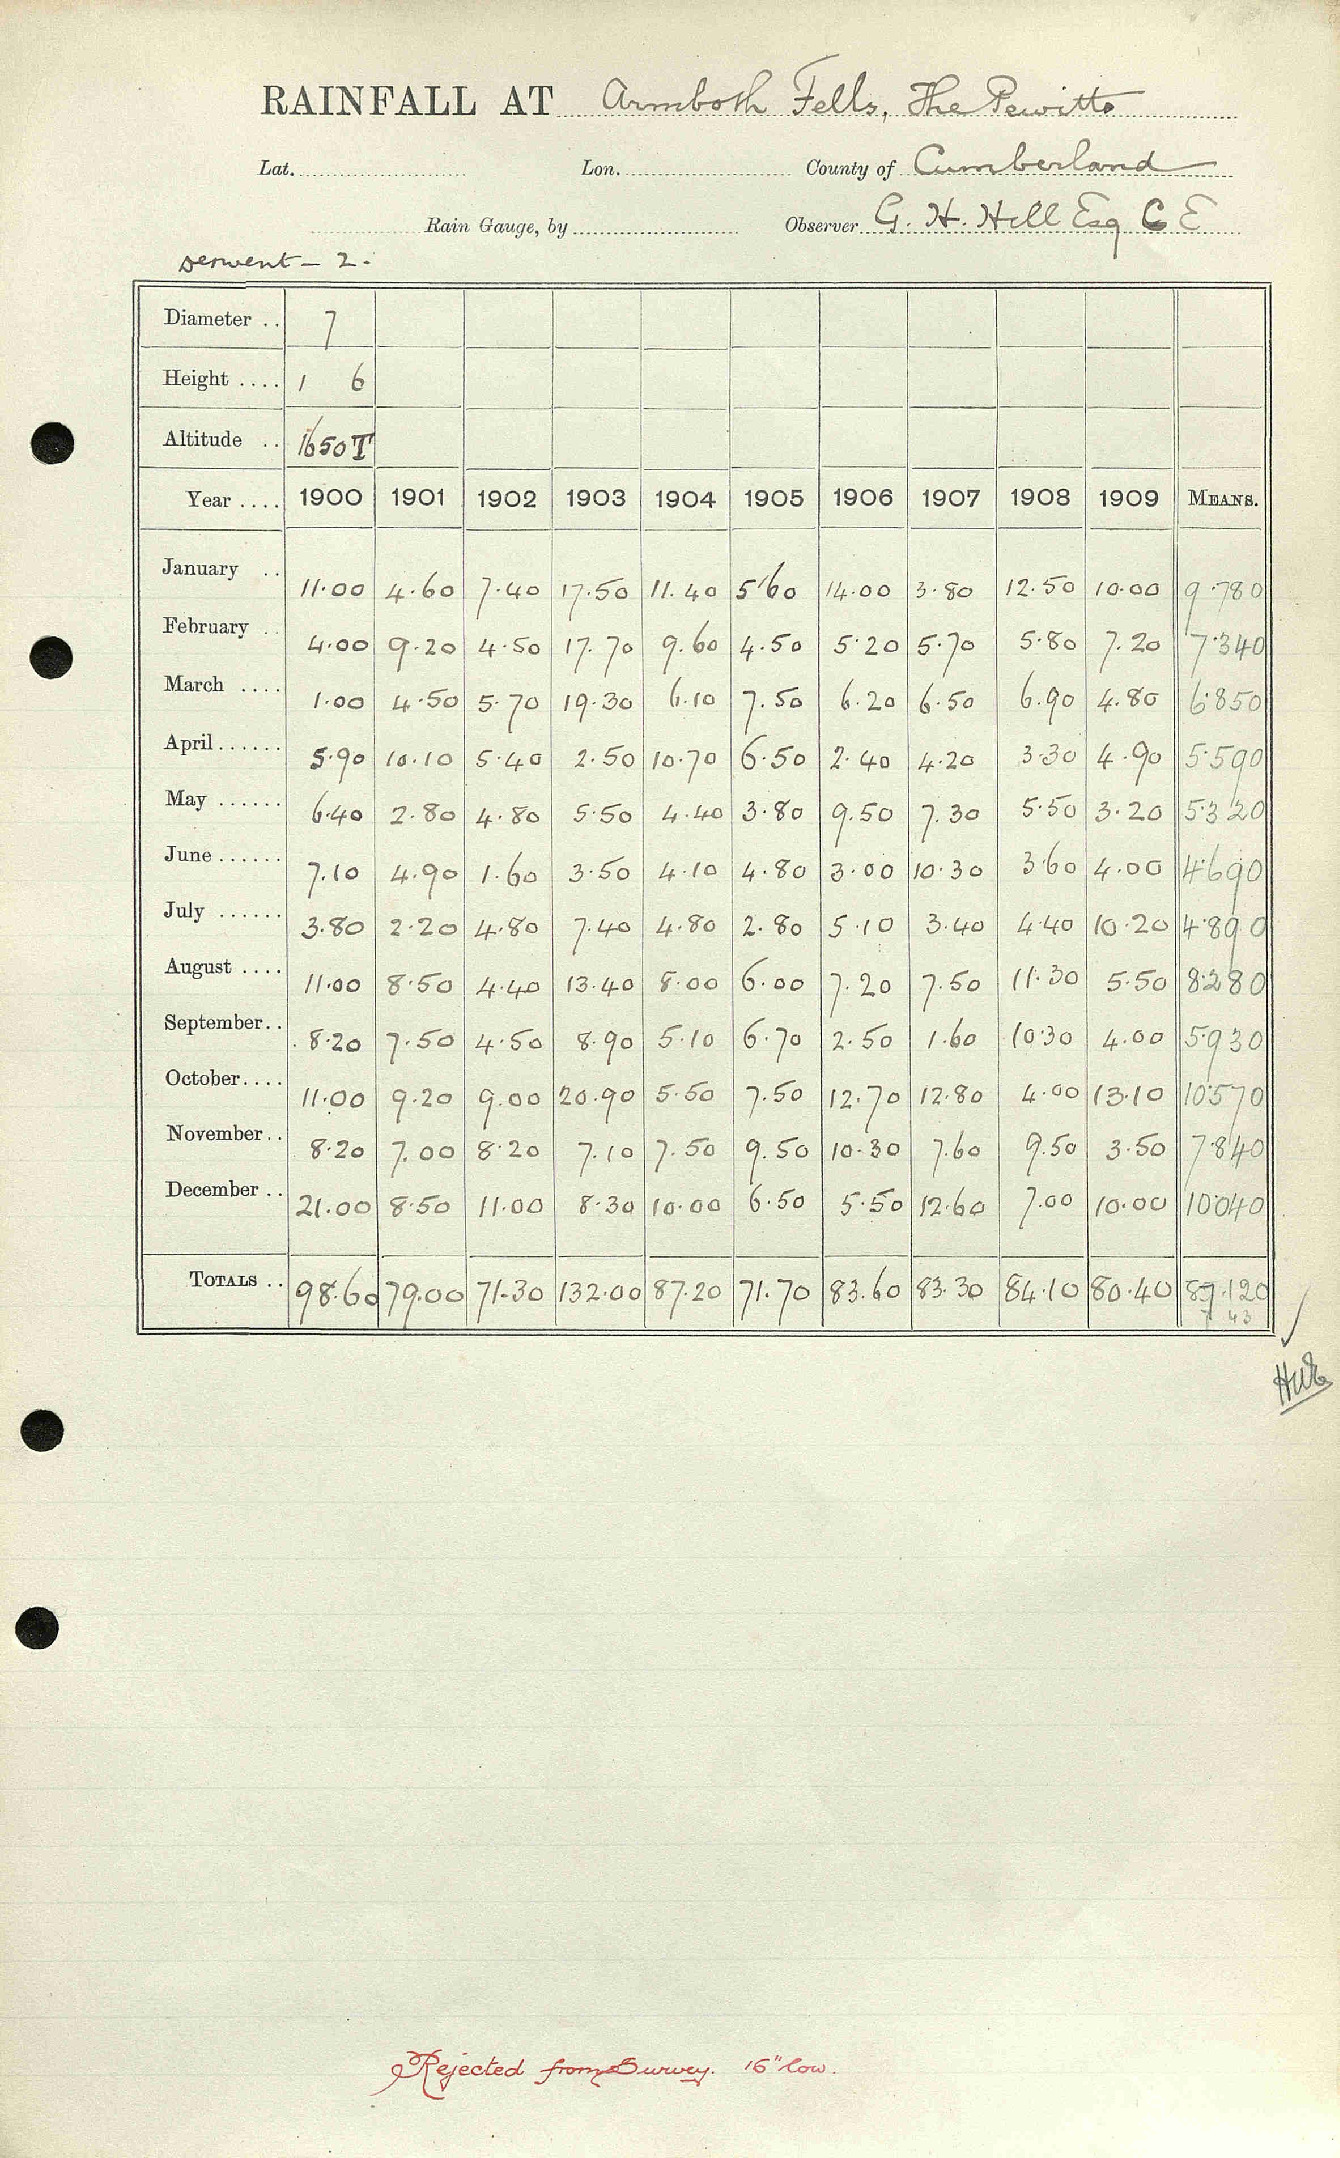 RAINFALL AT Armboth Fells, The Pewitts
Lat. Lon. County of Cumberland
Rain Gauge, by Observer G. H. Hill Esq C E
Derwent - 2.
Diameter .. 7
Height .... 1 6
Altitude .. 1650 T
Year .... 1900 1901 1902 1903 1904 1905 1906 1907 1908 1909 MEANS.
January .. 11.00 4.60 7.40 17.50 11.40 5.60 14.00 3.80 12.50 10.00 9.780
February .. 4.00 9.20 4.50 17.70 9.60 4.50 5.20 5.70 5.80 7.20 7.340
March .... 1.00 4.50 5.70 19.30 6.10 7.50 6.20 6.50 6.90 4.80 6.850
April...... 5.90 10.10 5.40 2.50 10.70 6.50 2.40 4.20 3.30 4.90 5.590
May ...... 6.40 2.80 4.80 5.50 4.40 3.80 9.50 7.30 5.50 3.20 5.320
June...... 7.10 4.90 1.60 3.50 4.10 4.80 3.00 10.30 3.60 4.00 4.690
July ...... 3.80 2.20 4.80 7.40 4.80 2.80 5.10 3.40 4.40 10.20 4.890
August .... 11.00 8.50 4.40 13.40 8.00 6.00 7.20 7.50 11.30 5.50 8.280
September.. 8.20 7.50 4.50 8.90 5.10 6.70 2.50 1.60 10.30 4.00 5.930
October.... 11.00 9.20 9.00 20.90 5.50 7.50 12.70 12.80 4.00 13.10 10.570
November.. 8.20 7.00 8.20 7.10 7.50 9.50 10.30 7.60 9.50 3.50 7.840
December .. 21.00 8.50 11.00 8.30 10.00 6.50 5.50 12.60 7.00 10.00 10.040
TOTALS .. 98.60 79.00 71.30 132.00 87.20 71.70 83.60 83.30 84.10 80.40 87.120
7 43
Rejected from Survey. 16" low.